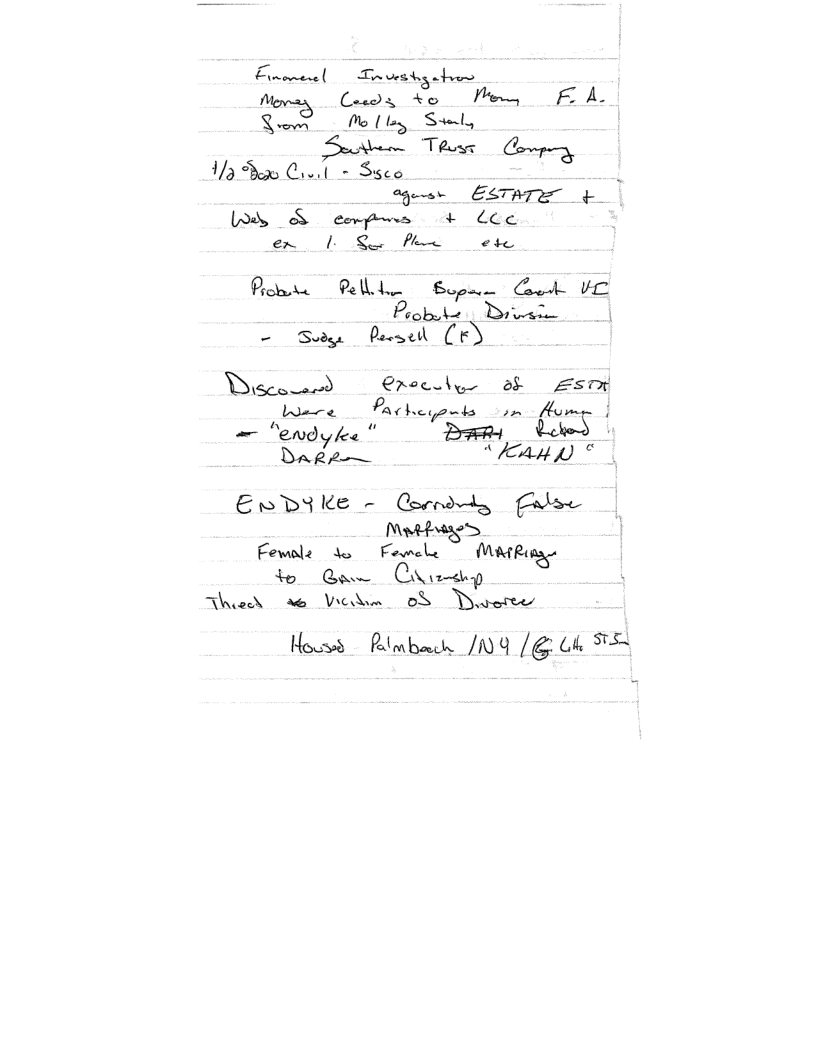 Financial Investigation
Money Leads to Many F. A.
from Molley Stanly
Southern TRUST Company
Civil - Sisco
against ESTATE +
Web of companies + LLC
ex 1. for Plane etc
Probate Petition Court VI
Probate Division
- Judge Persell (F)
Discovered executor of ESTA
Were Participants in Human
- "endyke" Richard
DARREN "KAHN"
ENDYKE - False
MARRIAGES
Female to Female MARRIAGE
to GAIN Citizenship
Threat to Victim of Divorce
Housed Palmbeach / NY /